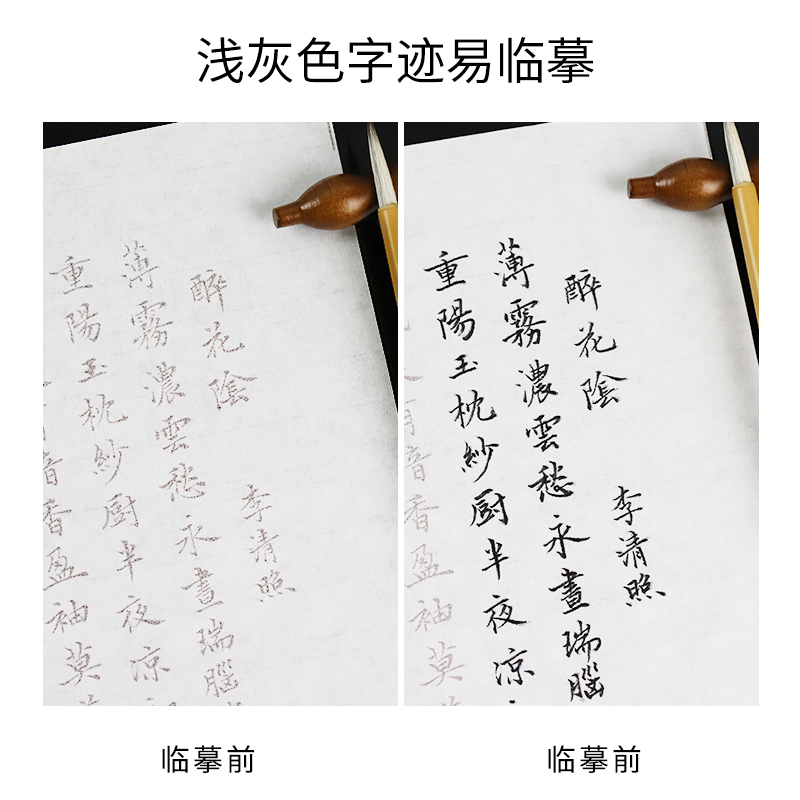 浅灰色字迹易临摹
醉花陰
李清照
薄霧濃雲愁永晝瑞腦
重陽玉枕紗厨半夜涼
香盈袖莫
醉花陰
李清照
薄霧濃雲愁永晝瑞腦
重陽玉枕紗厨半夜涼
香盈袖莫
临摹前
临摹前